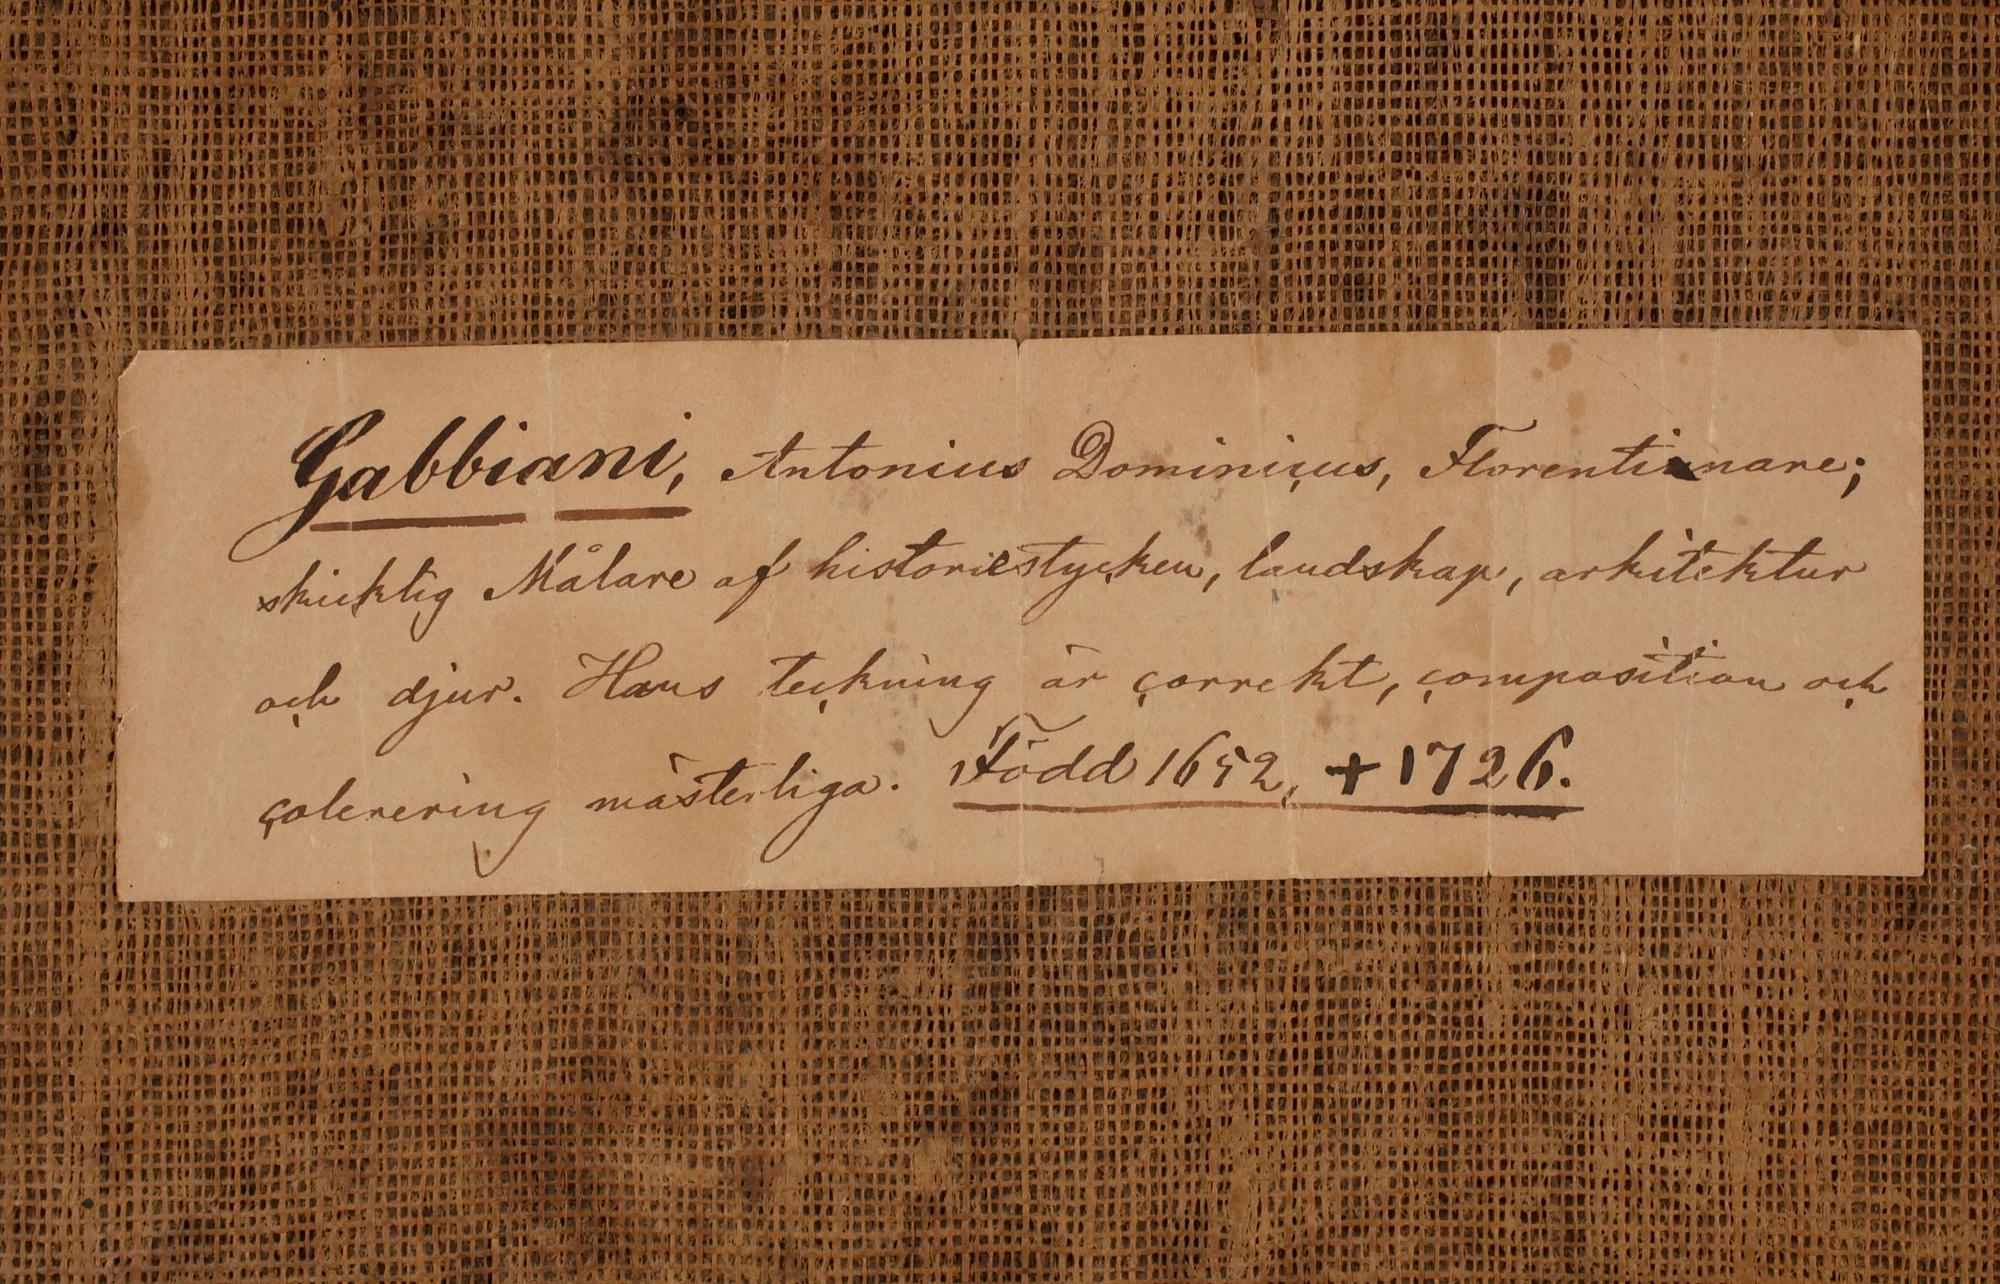 Gabbiani, Antonius Dominicus, Florentinare;
skicklig Målare af historiestycken, landskap, arkitektur
och djur. Hans teckning är correkt, composition och
colerering mästerliga. Född 1652, + 1726.